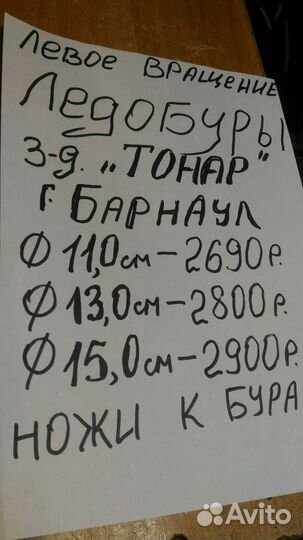 ЛЕВОЕ ВРАЩЕНИЕ
ЛЕДОБУРЫ
З-Д. „ТОНАР"
Г. БАРНАУЛ
Ø 11,0 см – 2690 Р.
Ø 13,0 см – 2800 Р.
Ø 15,0 см – 2900 Р.
НОЖИ К БУРА
Avito